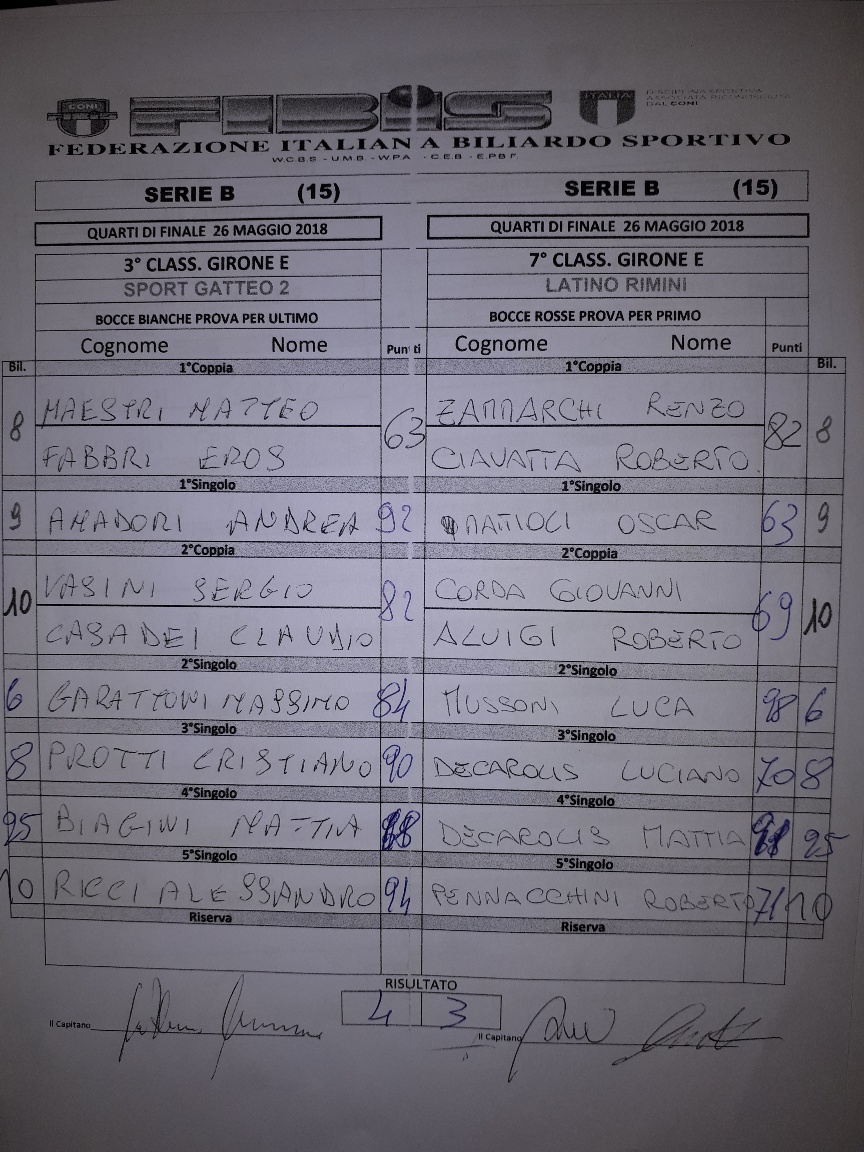 CONI FIBIS ITALIA DISCIPLINA SPORTIVA
ASSOCIATA RICONOSCIUTA
DAL CONI
FEDERAZIONE ITALIANA BILIARDO SPORTIVO
W.C.B.S - U.M.B - W.P.A - C.E.B - E.P.B.F.
SERIE B (15) SERIE B (15)
QUARTI DI FINALE 26 MAGGIO 2018 QUARTI DI FINALE 26 MAGGIO 2018
3° CLASS. GIRONE E 7° CLASS. GIRONE E
SPORT GATTEO 2 LATINO RIMINI
BOCCE BIANCHE PROVA PER ULTIMO BOCCE ROSSE PROVA PER PRIMO
Cognome Nome Punti Cognome Nome Punti
Bil. 1°Coppia 1°Coppia Bil.
8 MAESTRI MATTEO 63 ZAMMARCHI RENZO 82 8
FABBRI EROS CIAVATTA ROBERTO
1°Singolo 1°Singolo
9 AMADORI ANDREA 92 MATIOLI OSCAR 63 9
2°Coppia 2°Coppia
10 VASINI SERGIO 82 CORDA GIOVANNI 69 10
CASADEI CLAUDIO ALUIGI ROBERTO
2°Singolo 2°Singolo
6 GARATTONI MASSIMO 84 MUSSONI LUCA 98 6
3°Singolo 3°Singolo
8 PROTTI CRISTIANO 90 DECAROLIS LUCIANO 70 8
4°Singolo 4°Singolo
25 BIAGINI MATTIA DECAROLIS MATTIA 25
5°Singolo 5°Singolo
10 RICCI ALESSANDRO 94 PENNACCHINI ROBERTO 71 10
Riserva Riserva
RISULTATO
4 3
Il Capitano Il Capitano